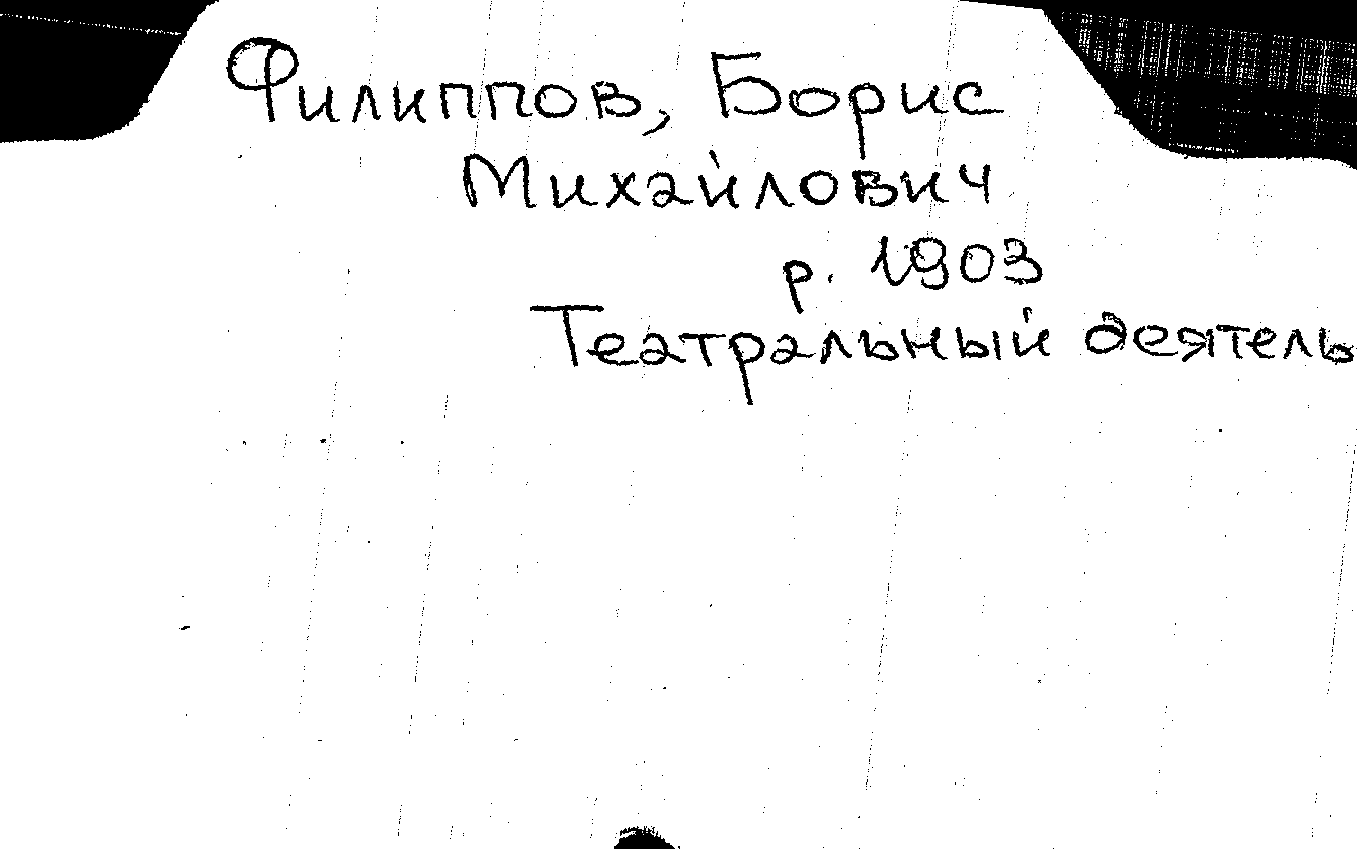 Филиппов, Борис
Михайлович
р. 1903
Театральный деятель